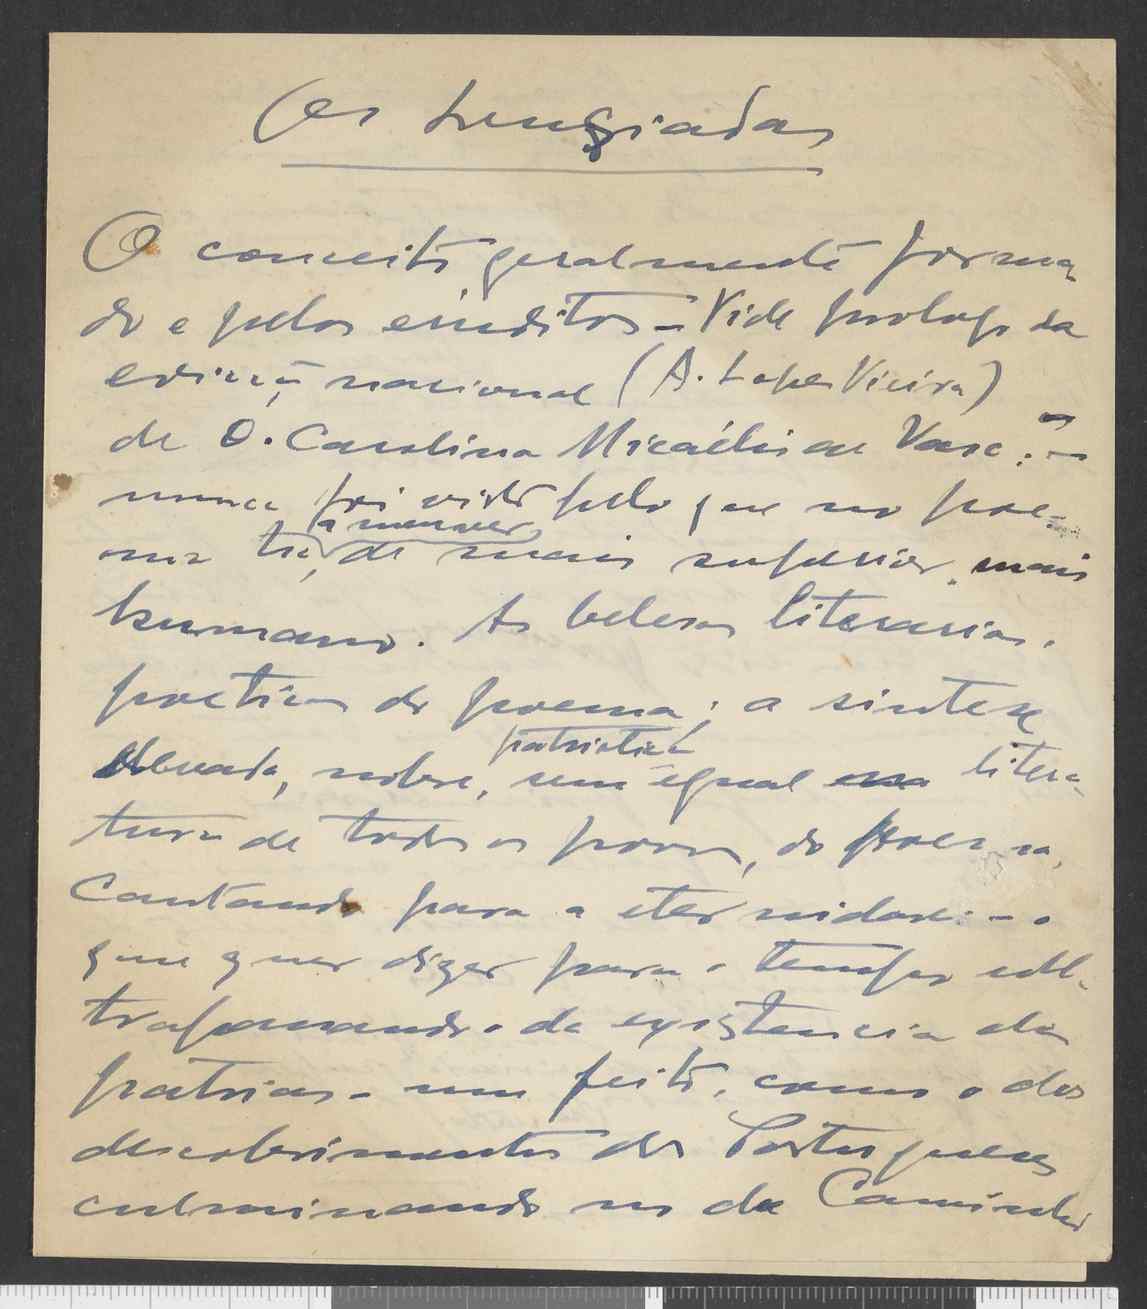 Os Lusiadas
O conceito geralmente forma
do e pelos eruditos – Vide prologo da
edição nacional (A. Lopes Vieira)
de D. Carolina Micaélis de Vasc. –
nunca foi visto pelo que no poe-
a meu ver
ma há, de mais superior, mais
humano. As belesas literarias,
poeticas do poema; a sintese
patriotica
elevada, nobre, sem egual na litera
tura de todos os povos, do Poema,
Cantando para a eternidade – o
que quer dizer para o tempo ull
trapassando o da existencia das
patrias – um feito, como o dos
descobrimentos dos Portugueses
culminando no do Caminho